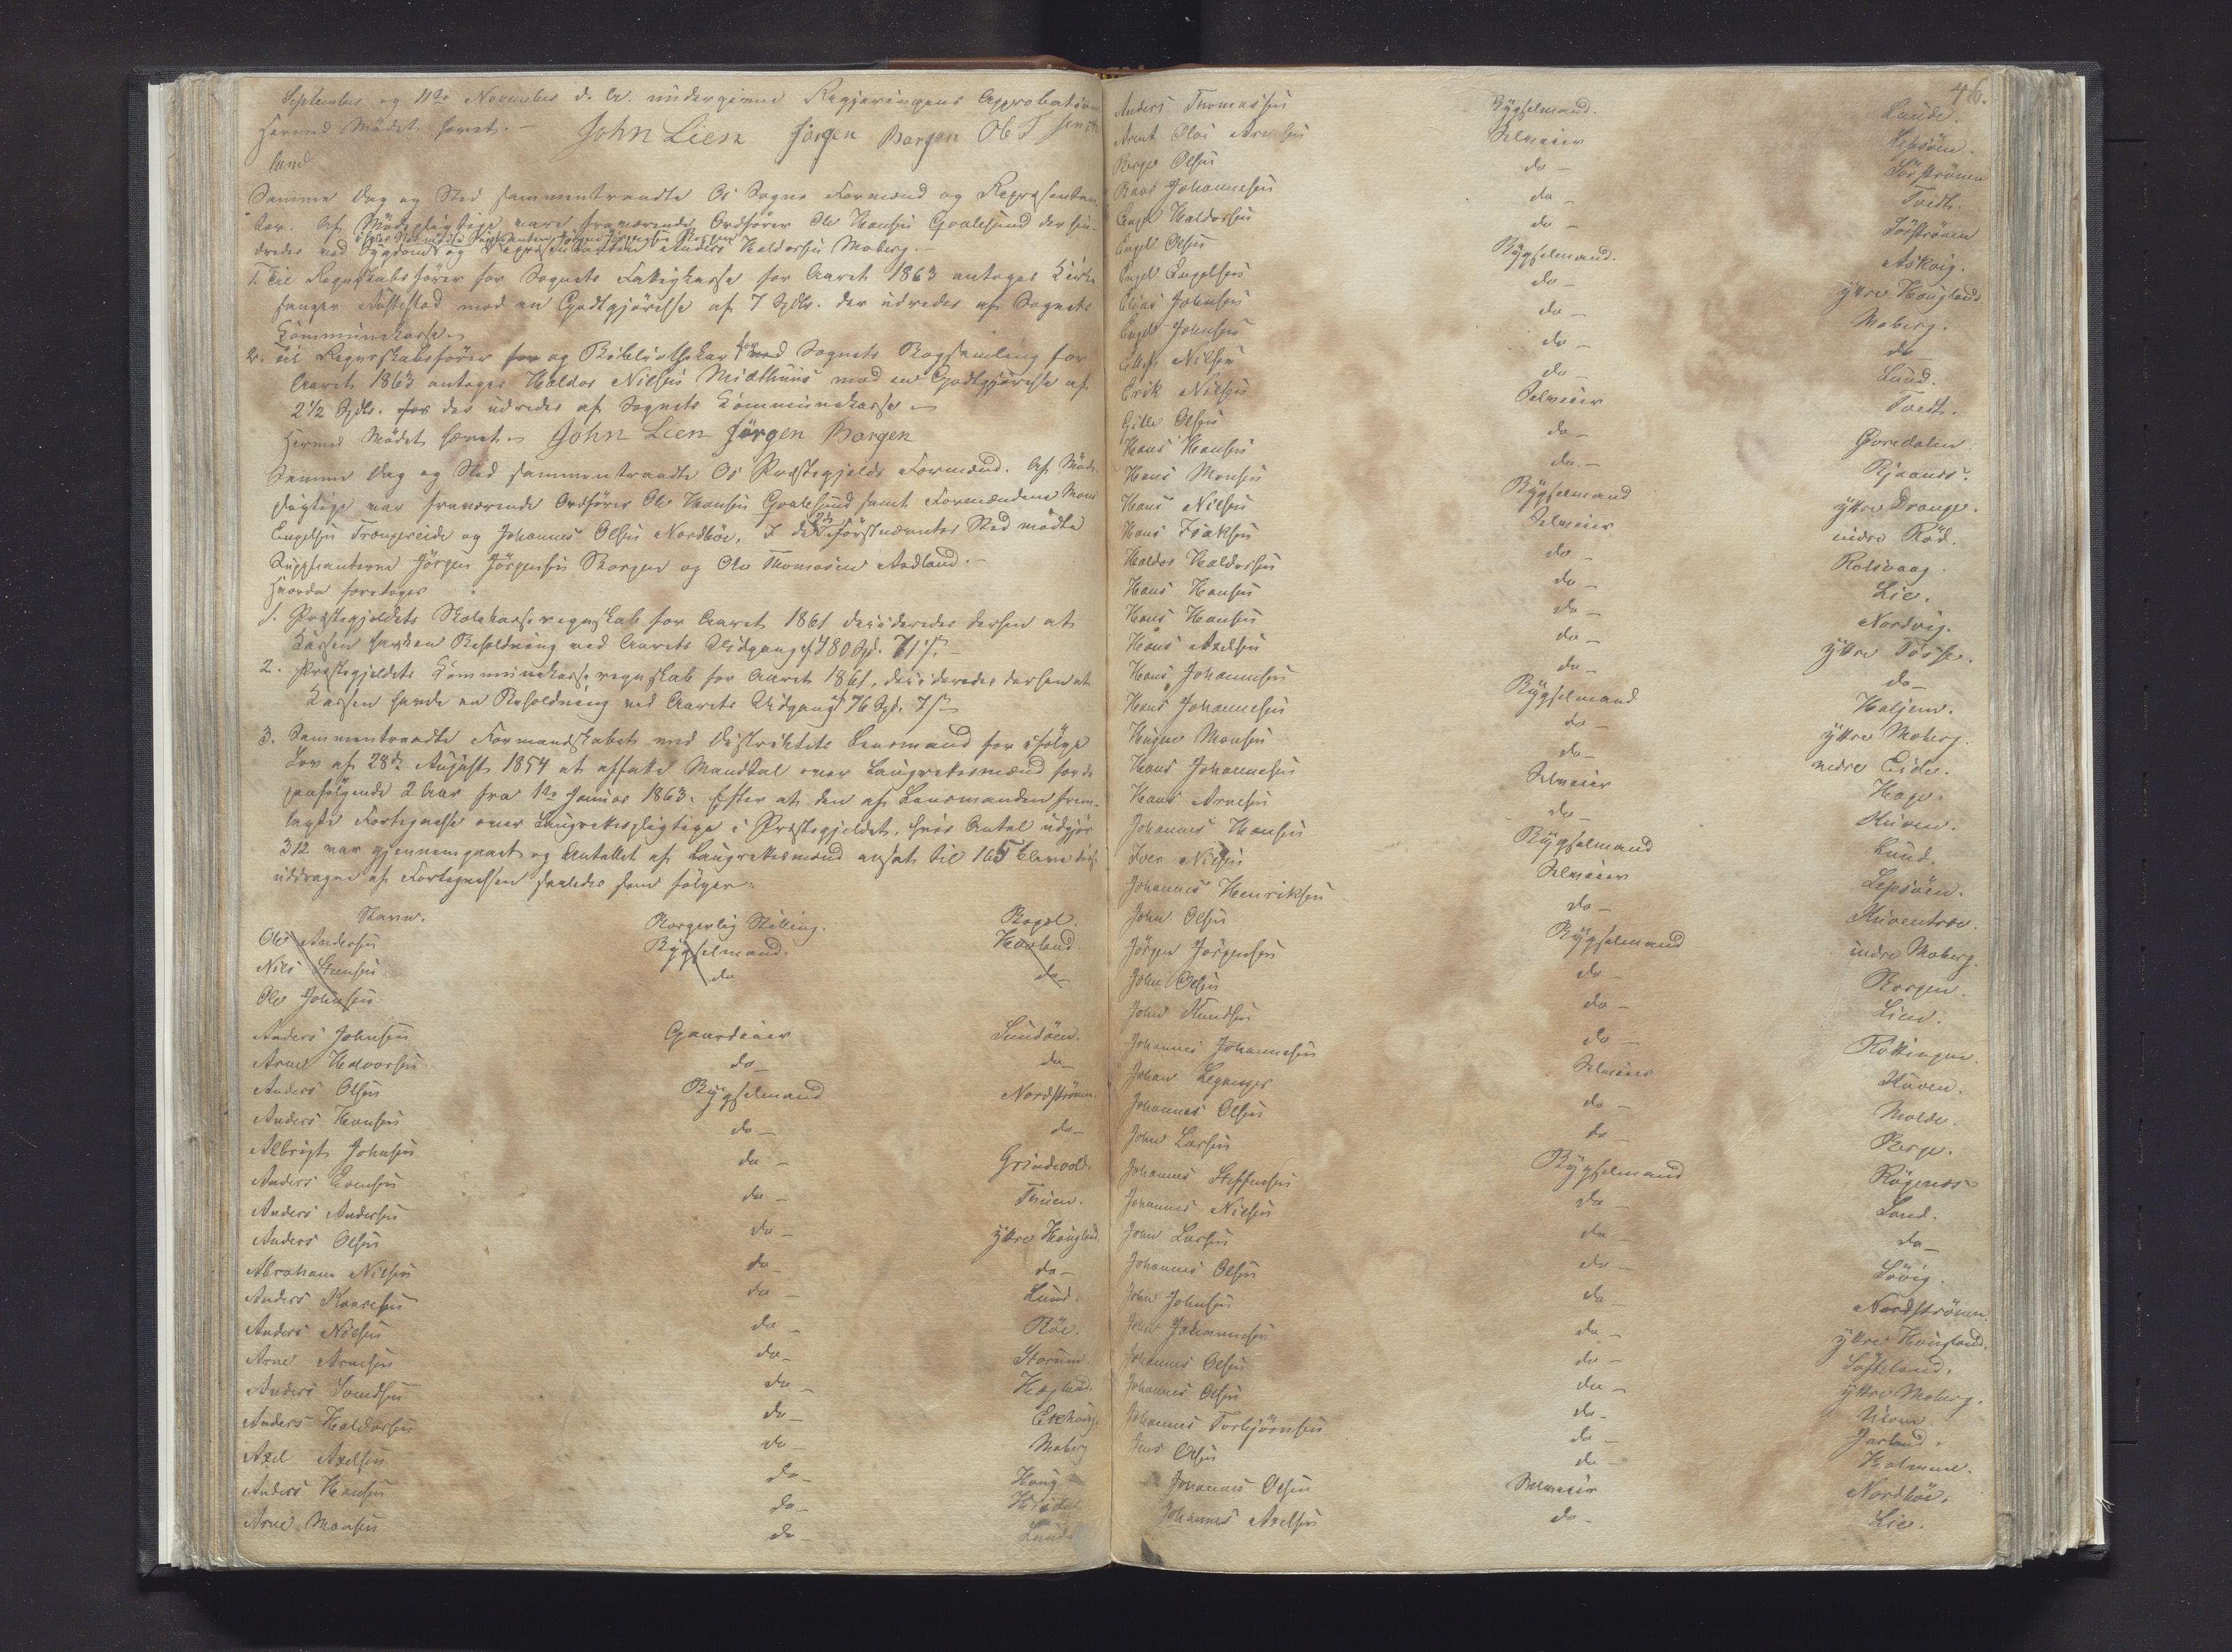 September og 11te November d. A. undergives Regjeringens Approbation
Hermed Mødet hævet. – John Lien Jørgen Borgen Ob T
land
Samme Dag og Sted sammentraadte Os Sogns Formænd og Repræsentan-
ter. Af Mødepligtige vare fraværende Ordfører Ole Hansen Gaalesund der hin-
dredes ved Sygdom og Repræsentanten Anders Haldorsen Moberg. –
i hans Sted mødte Suppleanten Jørgen Jørgensen Borgen
1. Til Regnskabsfører for Sognets Fattigkasse for Aaret 1863 antoges Kirke-
sanger mod en Godtgjørelse af 7 Spdlr. der udredes af Sognets
Kommunekasse. –
2. Til Regnskabsfører for og Bibliothekar ved Sognets Bogsamling for
Aaret 1863 antoges Haldor Nielsen Midthuus mod en Godtgjørelse af
2 1/2 Spdlr. for der udredes af Sognets Kommunekasse –
Hermed Mødet hævet. – John Lien Jørgen Borgen
Samme Dag og Sted sammentraadte Os Præstegjelds Formænd. Af Møde-
pligtige var fraværende Ordfører Ole Hansen Gaalesund samt Formændene Mons
Engelsen Trængereide og Johannes Olsen Nordbøe. I de 2de Førstnævntes Sted mødte
Suppleanterne Jørgen Jørgensen Borgen og Ole Thomasen Aadland. –
Hvorda foretoges
1. Præstegjeldets Skolekasseregnskab for Aaret 1861 decideredes dersen at
Kassen havde en Beholdning ved Aarets Udgang af 180 Spd. 71 s. –
2. Præstegjeldets Kommunekasseregnskab for Aaret 1861, decideredes dersen at
Kassen havde en Beholdning ved Aarets Udgang af 76 Spd. 7 s. –
3. Sammentraadte Formandskabet med Distriktets Lensmand for ifølge
Lov af 28de August 1854 at affatte Mandtal over Laugrettesmænd for de
paafølgende 2 Aar fra 1te Januar 1863. Efter at den af Lensmanden frem-
lagte Fortegnelse over Laugrettespligtige i Præstegjeldet, hvis Antal udgjør
312 var gjennemgaaet og Antallet af Laugrettesmænd ansat til 165 bleve disse
uddragne af Fortegnelsen saaledes som følger:
Navn. Borgerlig Stilling. Bopæl.
Ole Andersen Bygselmand. Havland.
Nils Steensen do do –
Ole Johnsen
Anders Johnsen Gaardeier Sundøen.
Arne Halvorsen do – do –
Anders Olsen Bygselmand Nordstrønen.
Anders Hansen do – do –
Albrigt Johnsen do – Grindevold.
Anders Evensen do – Tuen.
Anders Andersen do – ytre Hougland.
Anders Olsen do – do –
Abraham Nielsen do – Lund.
Anders Knudsen do – Røe.
Anders Nielsen do –
Arne Arnesen do –
Anders Svendsen do –
Anders Haldorsen do – Moberg
Axel Axelsen do – Houg
Anders Hansen do –
Arne Monsen do – Lunde
46.
Anders Thomassen Bygselmand. Lunde.
Arent Olai Arnesen Selveier Lepsøen.
Berge Olsen do – Sørstrønen
Baar Johannesen do – Tvedt.
Engel Haldorsen do – Sørstrønen
Engel Olsen Bygselmand. Askvig.
Engel Engelsen do – ytre Hougland.
Elias Johnsen do – Moberg.
Engel Johnsen do – do –
Ellef Nielsen do – Lund.
Erik Nielsen Selveier Tvedt.
Gitle Olsen do – Øvredalen.
Hans Hansen do. –
Hans Monsen Bygselmand ytre Drange.
Hans Nielsen Selveier indre Rød.
Hans Isaksen do – Rolsvaag.
Haldor Haldorsen do – Lie.
Hans Hansen do – Nordvig.
Hans Hansen do – ytre Tøsse.
Hans Axelsen do – do –
Hans Johannesen Bygselmand Haljem.
Hans Johannesen do – ytre Moberg.
Hugne Monsen do – nedre Eide.
Hans Johannesen Selveier Hage.
Hans Arnesen do – Kuven.
Johannes Hansen Bygselmand Lund.
Iver Nielsen Selveier Lepsøen.
Johannes Henriksen do – Kuventræ.
John Olsen Bygselmand indre Moberg.
Jørgen Jørgensen do – Borgen.
John Olsen do – Lien.
John Knudsen do – Røttingen.
Johannes Johannesen Selveier Kuven.
Johan Leganger do – Molde.
Johannes Olsen do – Berge.
John Larsen Bygselmand
Johannes Steffensen do – Sand.
Johannes Nielsen do – do –
John Larsen do – Søvig.
Johannes Olsen do – Nordstrønen.
John Johnsen do – ytre Hougland.
John Johannesen do – Søfteland.
Johannes Olsen do – ytre Moberg.
Johannes Olsen do –
Johannes Torbjørnsen do –
Jens Olsen do – Holmene.
Johannes Olsen Selveier Nordbøe.
Johannes Axelsen do – Lie.